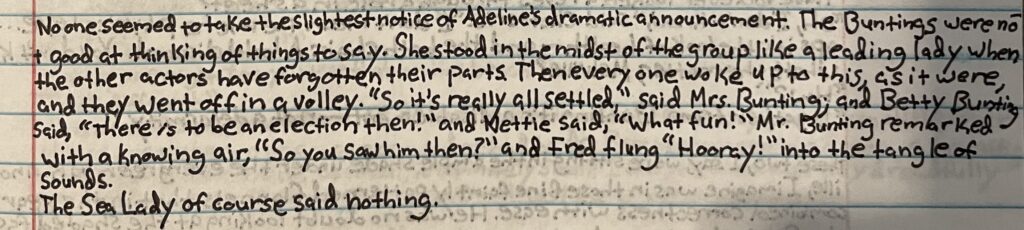 No one seemed to take the slightest notice of Adeline's dramatic announcement. The Buntings were no
t good at thinking of things to say. She stood in the midst of the group like a leading lady when
the other actors have forgotten their parts. Then every one woke up to this, as it were,
and they went off in a volley. "So it's really all settled," said Mrs. Bunting; and Betty Bunting
said, "There is to be an election then!" and Nettie said, "What fun!" Mr. Bunting remarked
with a knowing air, "So you saw him then?" and Fred flung "Hooray!" into the tangle of
sounds.
The Sea Lady of course said nothing.